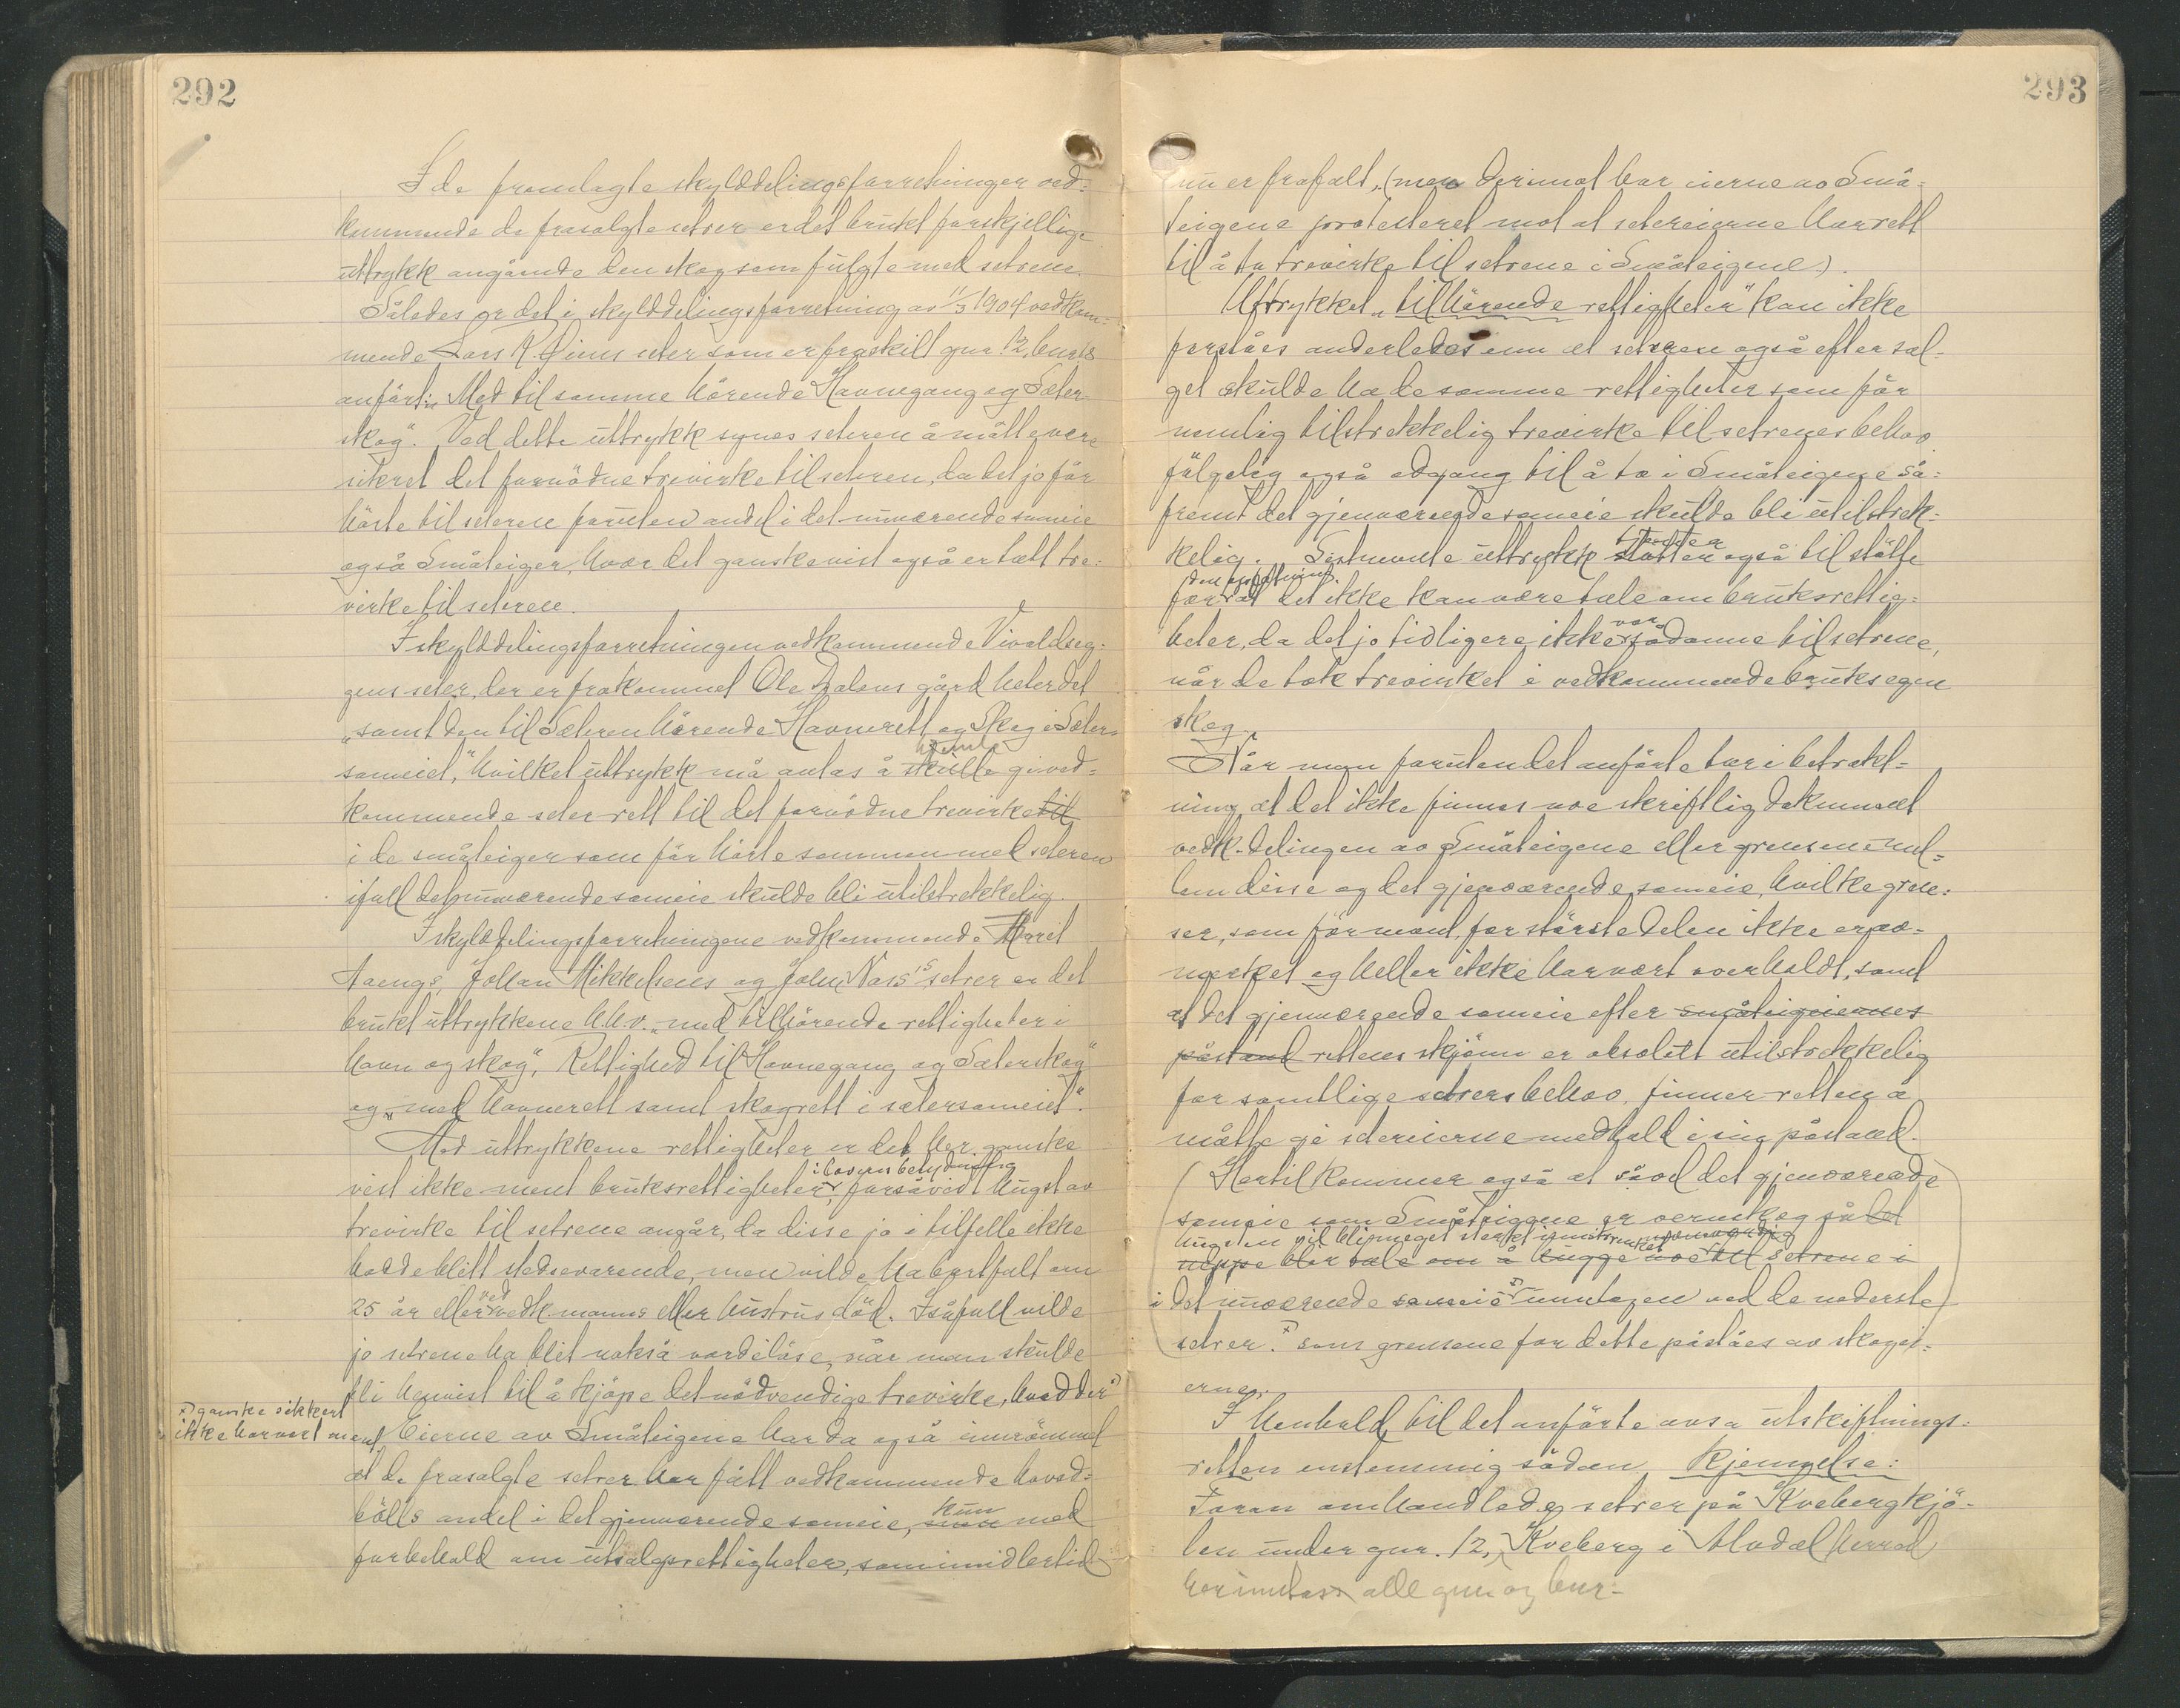 292
I de fremlagte skylddelingsforretninger ved-
kommende de frasolgte setrer er det brukt forskjellige
uttrykk angående den skog som fulgte med setrene.
Således er det i skylddelingsforretning av 11/3 1904 vedkom-
mende Lars R. seter som er fraskilt gnr. 12, bnr 18
anført: "Med til samme hörende Havnegang og Sæter-
skog". Ved dette uttrykk synes seteren å måtte være
sikret det fornödne trevirke til seteren, da det jo för
hörte til seteren foruten andel i det nuværende sameie
også Småteiger, hvor det ganske visst også er tatt tre-
virke til seteren.
I skylddelingsforretningen vedkommende Vivaldseg-
gens seter, der er frakommet Ole Dalens gård heter det
"samt den til Sæteren hörende Havnerett og Skog i Sæter-
sameiet," hvilket uttrykk må antas å skulle gi ved-
kommende seter rett til det fornödne trevirke til
i de småteiger som för hörte sammen med seteren
ifall det nuværende sameie skulde bli utilstrekkelig.
I skylddelingsforretningene vedkommende Marit
Aaengs, Johan Mikkelsens og John Nass's setrer er det
brukt uttrykkene h.h.v. "med tilhörende rettigheter i
havn og skog", "Rettighed til Havnegang og Sæterskog"
og "med havnerett samt skogrett i sætersameiet".
Med uttrykkene rettigheter er det her ganske
i lovens betydning
visst ikke ment bruksrettigheter, forsåvidt hugst av
trevirke til setrene angår, da disse jo i tilfelle ikke
hadde blitt stedsevarende, men vilde ha bortfalt om
25 år eller ved vedk. manns eller hustrus död. Isåfall vilde
jo setrene ha blit nokså verdilöse, når man skulde
bli henvist til å kjöpe det nödvendige trevirke, hvad der
ganske sikkert
ikke har vært ment
Eierne av Småteigene har da også innrömmet
at de frasolgte setrer har fått vedkommende hoved-
kun
bölls andel i det gjenværende sameie, men med
forbehold om utsalgsrettigheter, som imidlertid
293
nu er frafalt, (men derimot har eierne av Små-
teigene protesteret mot at setereierne har rett
til å ta trevirke til setrene i Småteigene).
Uttrykket "tilhörende rettigheter" kan ikke
forståes anderledes enn at setrene også efter sal-
get skulde ha de samme rettigheter som för
nemlig tilstrekkelig trevirke til setrenes behov
fölgelig også adgang til å ta i Småteigene så-
fremt det gjenværende sameie skulde bli utilstrek-
kelig. Sistnevnte uttrykk tjener også til stötte
den opfatning
for at det ikke kan være tale om bruksrettig-
var
heter, da det jo tidligere ikke sådanne til setrene,
når de tok trevirket i vedkommende bruks egen
skog.
Når man foruten det anförte tar i betrakt-
ning at det ikke finnes noe skriftlig dokument
vedk. delingen av Småteigene eller grensene mel-
lem disse og det gjenværende sameie, hvilke gren-
ser, som för nevnt, for störste delen ikke er av-
merket og heller ikke har vært overholdt, samt
at det gjenværende sameie efter småteigeiernes
påstand rettens skjönn er absolutt utilstrekkelig
for samtlige setrers behov, finner retten å
måtte gi setereierne medhold i sin påstand.
(Hertil kommer også at såvel det gjenværende
sameie som Småteigene er vernskog så at
hugsten vil bli meget sterkt innskrenket
neppe blir tale om å hugge noe til setrene i
i det nuværende sameie unntagen ved de nederste
setrer. som grensene for dette påståes av skogei-
erne.
I henhold til det anförte avsa utskiftnings-
retten enstemmig sådan Kjennelse:
Foran omhandlede setrer på Kvebergkjö-
len under gnr. 12, Kveberg i Alvdal herred
alle gnr og bnr.